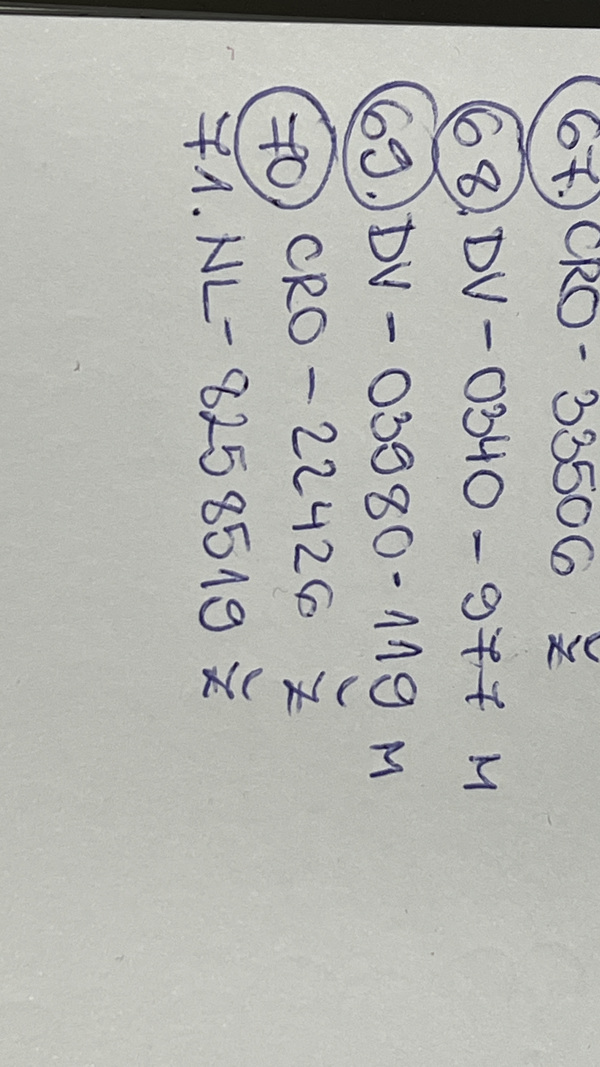 67. CRO - 33506 Ž
68. DV - 0340 - 977 M
69. DV - 03980 - 119 M
70. CRO - 22426 Ž
71. NL - 8258519 Ž